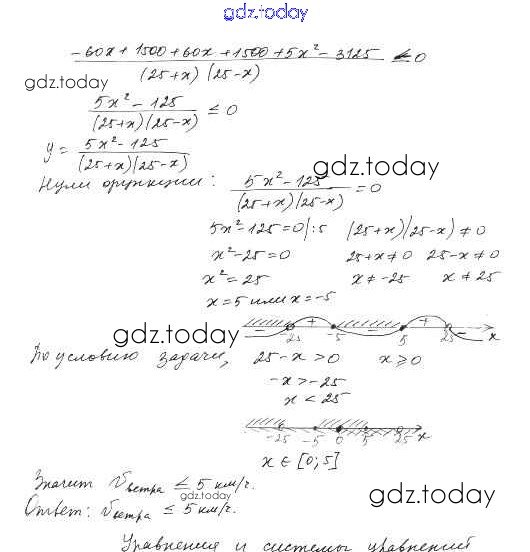 gdz.today
-60x+1500+60x+1500+5x²-3125 / (25+x)(25-x) ≤ 0
gdz.today
5x²-125 / (25+x)(25-x) ≤ 0
y = 5x²-125 / (25+x)(25-x)
gdz.today
Нули функции: 5x²-125 / (25+x)(25-x) = 0
5x²-125=0 |:5 (25+x)(25-x) ≠ 0
x²-25=0 25+x≠0 25-x≠0
x²=25 x≠-25 x≠25
x=5 или x=-5
gdz.today
- + - + -
-25 -5 5 25 x
По условию задачи, 25-x>0 x≥0
-x>-25
x<25
-25 -5 0 5 25 x
x∈[0;5]
Значит υветра ≤ 5 км/ч.
gdz.today
Ответ: υветра ≤ 5 км/ч.
gdz.today
Уравнения и системы уравнений